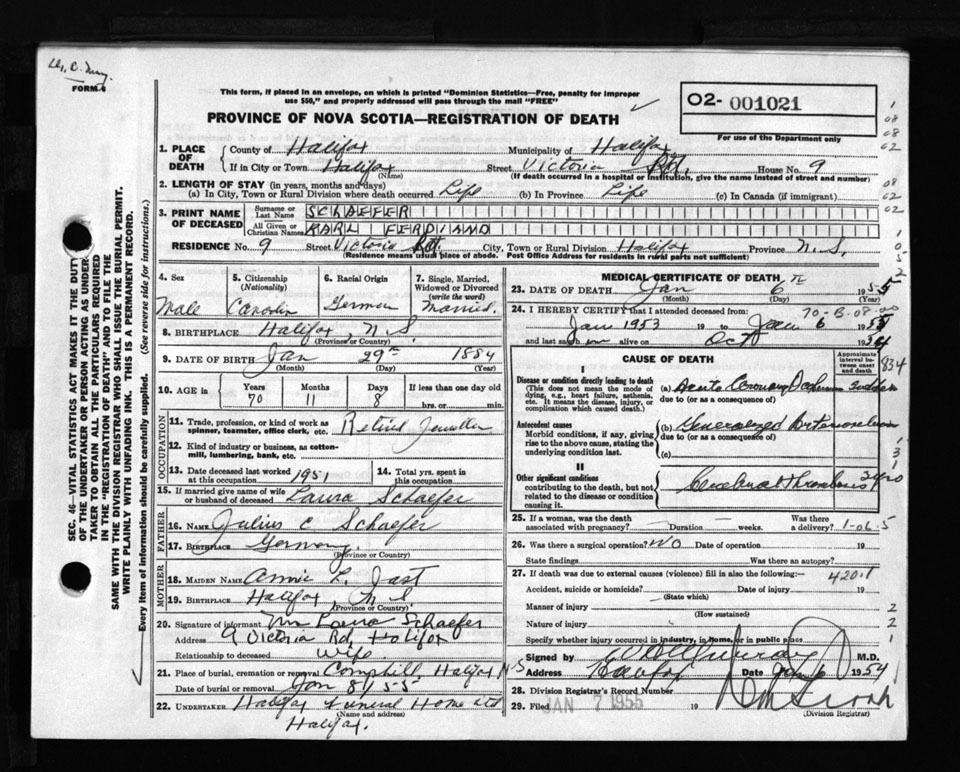 FORM 6
This form, if placed in an envelope, on which is printed "Dominion Statistics—Free, penalty for improper
use $50," and properly addressed will pass through the mail "FREE"
PROVINCE OF NOVA SCOTIA—REGISTRATION OF DEATH
O2- 001021
For use of the Department only
1. PLACE OF DEATH County of Halifax Municipality of Halifax
If in City or Town Halifax Street Victoria Rd. House No. 9
(Name) (If death occurred in a hospital or institution, give the name instead of street and number)
2. LENGTH OF STAY (in years, months and days)
(a) In City, Town or Rural Division where death occurred Life (b) In Province Life (c) In Canada (if immigrant)
3. PRINT NAME OF DECEASED Surname or Last Name SCHAEFER
All Given or Christian Names KARL FERDINAND
RESIDENCE No. 9 Street Victoria Rd. City, Town or Rural Division Halifax Province N.S.
(Residence means usual place of abode. Post Office Address for residents in rural parts not sufficient)
4. Sex Male
5. Citizenship (Nationality) Canadian
6. Racial Origin German
7. Single, Married, Widowed or Divorced (write the word) Married.
8. BIRTHPLACE Halifax, N.S.
(Province or Country)
9. DATE OF BIRTH Jan 29th 1884
(Month) (Day) (Year)
10. AGE in Years 70 Months 11 Days 8 If less than one day old
hrs. or min.
OCCUPATION
11. Trade, profession, or kind of work as spinner, teamster, office clerk, etc. Retired Jeweller
12. Kind of industry or business, as cotton-mill, lumbering, bank, etc.
13. Date deceased last worked at this occupation 1951 14. Total yrs. spent in this occupation
15. If married give name of wife or husband of deceased Laura Schaefer
FATHER
16. NAME Julius C Schaefer
17. BIRTHPLACE Germany
(Province or Country)
MOTHER
18. MAIDEN NAME Annie L. Jast
19. BIRTHPLACE Halifax, N S
(Province or Country)
20. Signature of informant Mrs Laura Schaefer
Address 9 Victoria Rd, Halifax
Relationship to deceased Wife
21. Place of burial, cremation or removal Camphill, Halifax N.S
Date of burial or removal Jan 8/55
22. UNDERTAKER Halifax Funeral Home Ltd
(Name and address)
Halifax.
MEDICAL CERTIFICATE OF DEATH
23. DATE OF DEATH Jan 6th 1955
(Month) (Day) (Year)
70-B-08-00
24. I HEREBY CERTIFY that I attended deceased from:
Jan 1953 19 to Jan 6 1955
and last saw him alive on Oct 1954
CAUSE OF DEATH
Approximate interval between onset and death
834
I
Disease or condition directly leading to death (a) Acute Coronary Occlusion Sudden
(This does not mean the mode of dying, e.g., heart failure, asthenia, etc. It means the disease, injury, or complication which caused death.)
due to (or as a consequence of)
Antecedent causes (b) Generalized Arteriosclerosis
Morbid conditions, if any, giving rise to the above cause, stating the underlying condition last.
due to (or as a consequence of)
(c)
II
Other significant conditions contributing to the death, but not related to the disease or condition causing it.
Cerebral Thrombosis 2 yrs
25. If a woman, was the death associated with pregnancy? Duration weeks. Was there a delivery? 1-06-5
26. Was there a surgical operation? NO Date of operation 19
State findings Was there an autopsy?
27. If death was due to external causes (violence) fill in also the following:— 420.1
Accident, suicide or homicide? Date of injury 19
(State which)
Manner of injury
(How sustained)
Nature of injury
Specify whether injury occurred in industry, in home, or in public place
Signed by M.D.
Address Halifax Date 1954
28. Division Registrar's Record Number
29. Filed JAN 7 1955 19
(Division Registrar)
SEC. 46- VITAL STATISTICS ACT MAKES IT THE DUTY
OF THE UNDERTAKER OR PERSON ACTING AS UNDER-
TAKER TO OBTAIN ALL THE PARTICULARS REQUIRED
IN THE "REGISTRATION OF DEATH" AND TO FILE THE
SAME WITH THE DIVISION REGISTRAR WHO SHALL ISSUE THE BURIAL PERMIT.
WRITE PLAINLY WITH UNFADING INK. THIS IS A PERMANENT RECORD.
Every item of information should be carefully supplied. (See reverse side for instructions.)